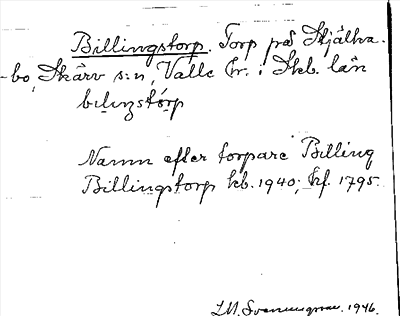 Billingstorp. Torp på Stjälka-
-bo, Skärv s:n, Valle hr. i Skb. län
bilingstórp
Namn efter torpare Billing
Billingstorp kb. 1940; hf. 1795.
1946.